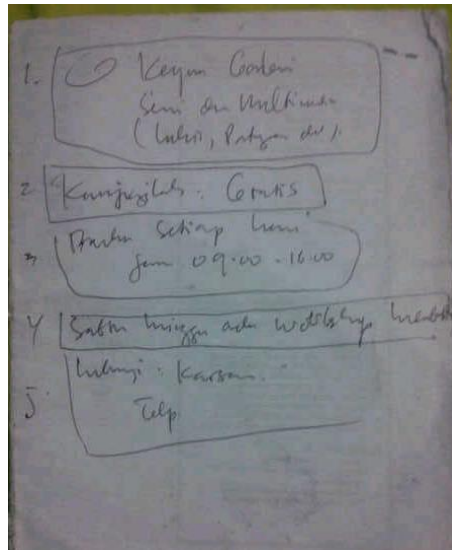 1. Keyum Galeri
Seni dan Multimedia
(Lukis, Patung dll).
2 Kunjungilah. Gratis
3 Buka Setiap hari
Jam 09.00 - 16.00
4 Sabtu minggu ada workshop
5 Hubungi : Karsam.
Telp